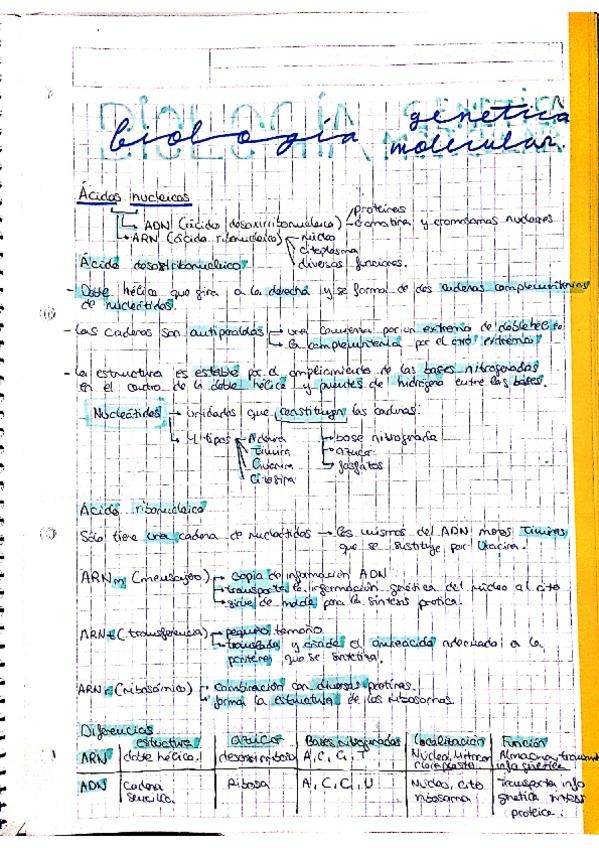 biología genética
molecular.
Ácidos nucleicos
ADN (ácido desoxirribonucleico) proteínas
cromatina y cromosomas nucleares
ARN (ácido ribonucleico) núcleo
citoplasma
diversas funciones.
Ácido desoxirribonucleico
- Doble hélice que gira a la derecha y se forma de dos cadenas complementarias
de nucleótidos.
- Las cadenas son antiparalelas → una comienza por un extremo de doble hélice
la complementaria por el otro extremo
- La estructura es estable por el ampliamiento de las bases nitrogenadas
en el centro de la doble hélice y puentes de hidrógeno entre las bases.
Nucleótidos → unidades que constituyen las cadenas.
4 tipos Adenina → base nitrogenada
Timina → azúcar
Guanina → fosfatos
Citosina
Ácido ribonucleico
Sólo tiene una cadena de nucleótidos → los mismos del ADN menos Timina
que se sustituye por Uracina.
ARNm (mensajero) → copia de información ADN
→ transporta la información genética del núcleo al cito
→ sirve de molde para la síntesis proteica.
ARNt (transferencia) → pequeño tamaño
→ y añade el aminoácido adecuado a la
proteína que se sintetiza.
ARNr (ribosómico) → combinación con diversas proteínas.
→ forma la estructura de los ribosomas.
Diferencias
estructura azúcar Bases nitrogenadas Localización Función
ARN doble hélice. desoxirribosa A, C, G, T Núcleo, mitocon Almacena y transmite
cloroplastos info genética
ADN Cadena Ribosa A, C, G, U Núcleo, cito Transporta info
sencilla. ribosoma genética
proteica.